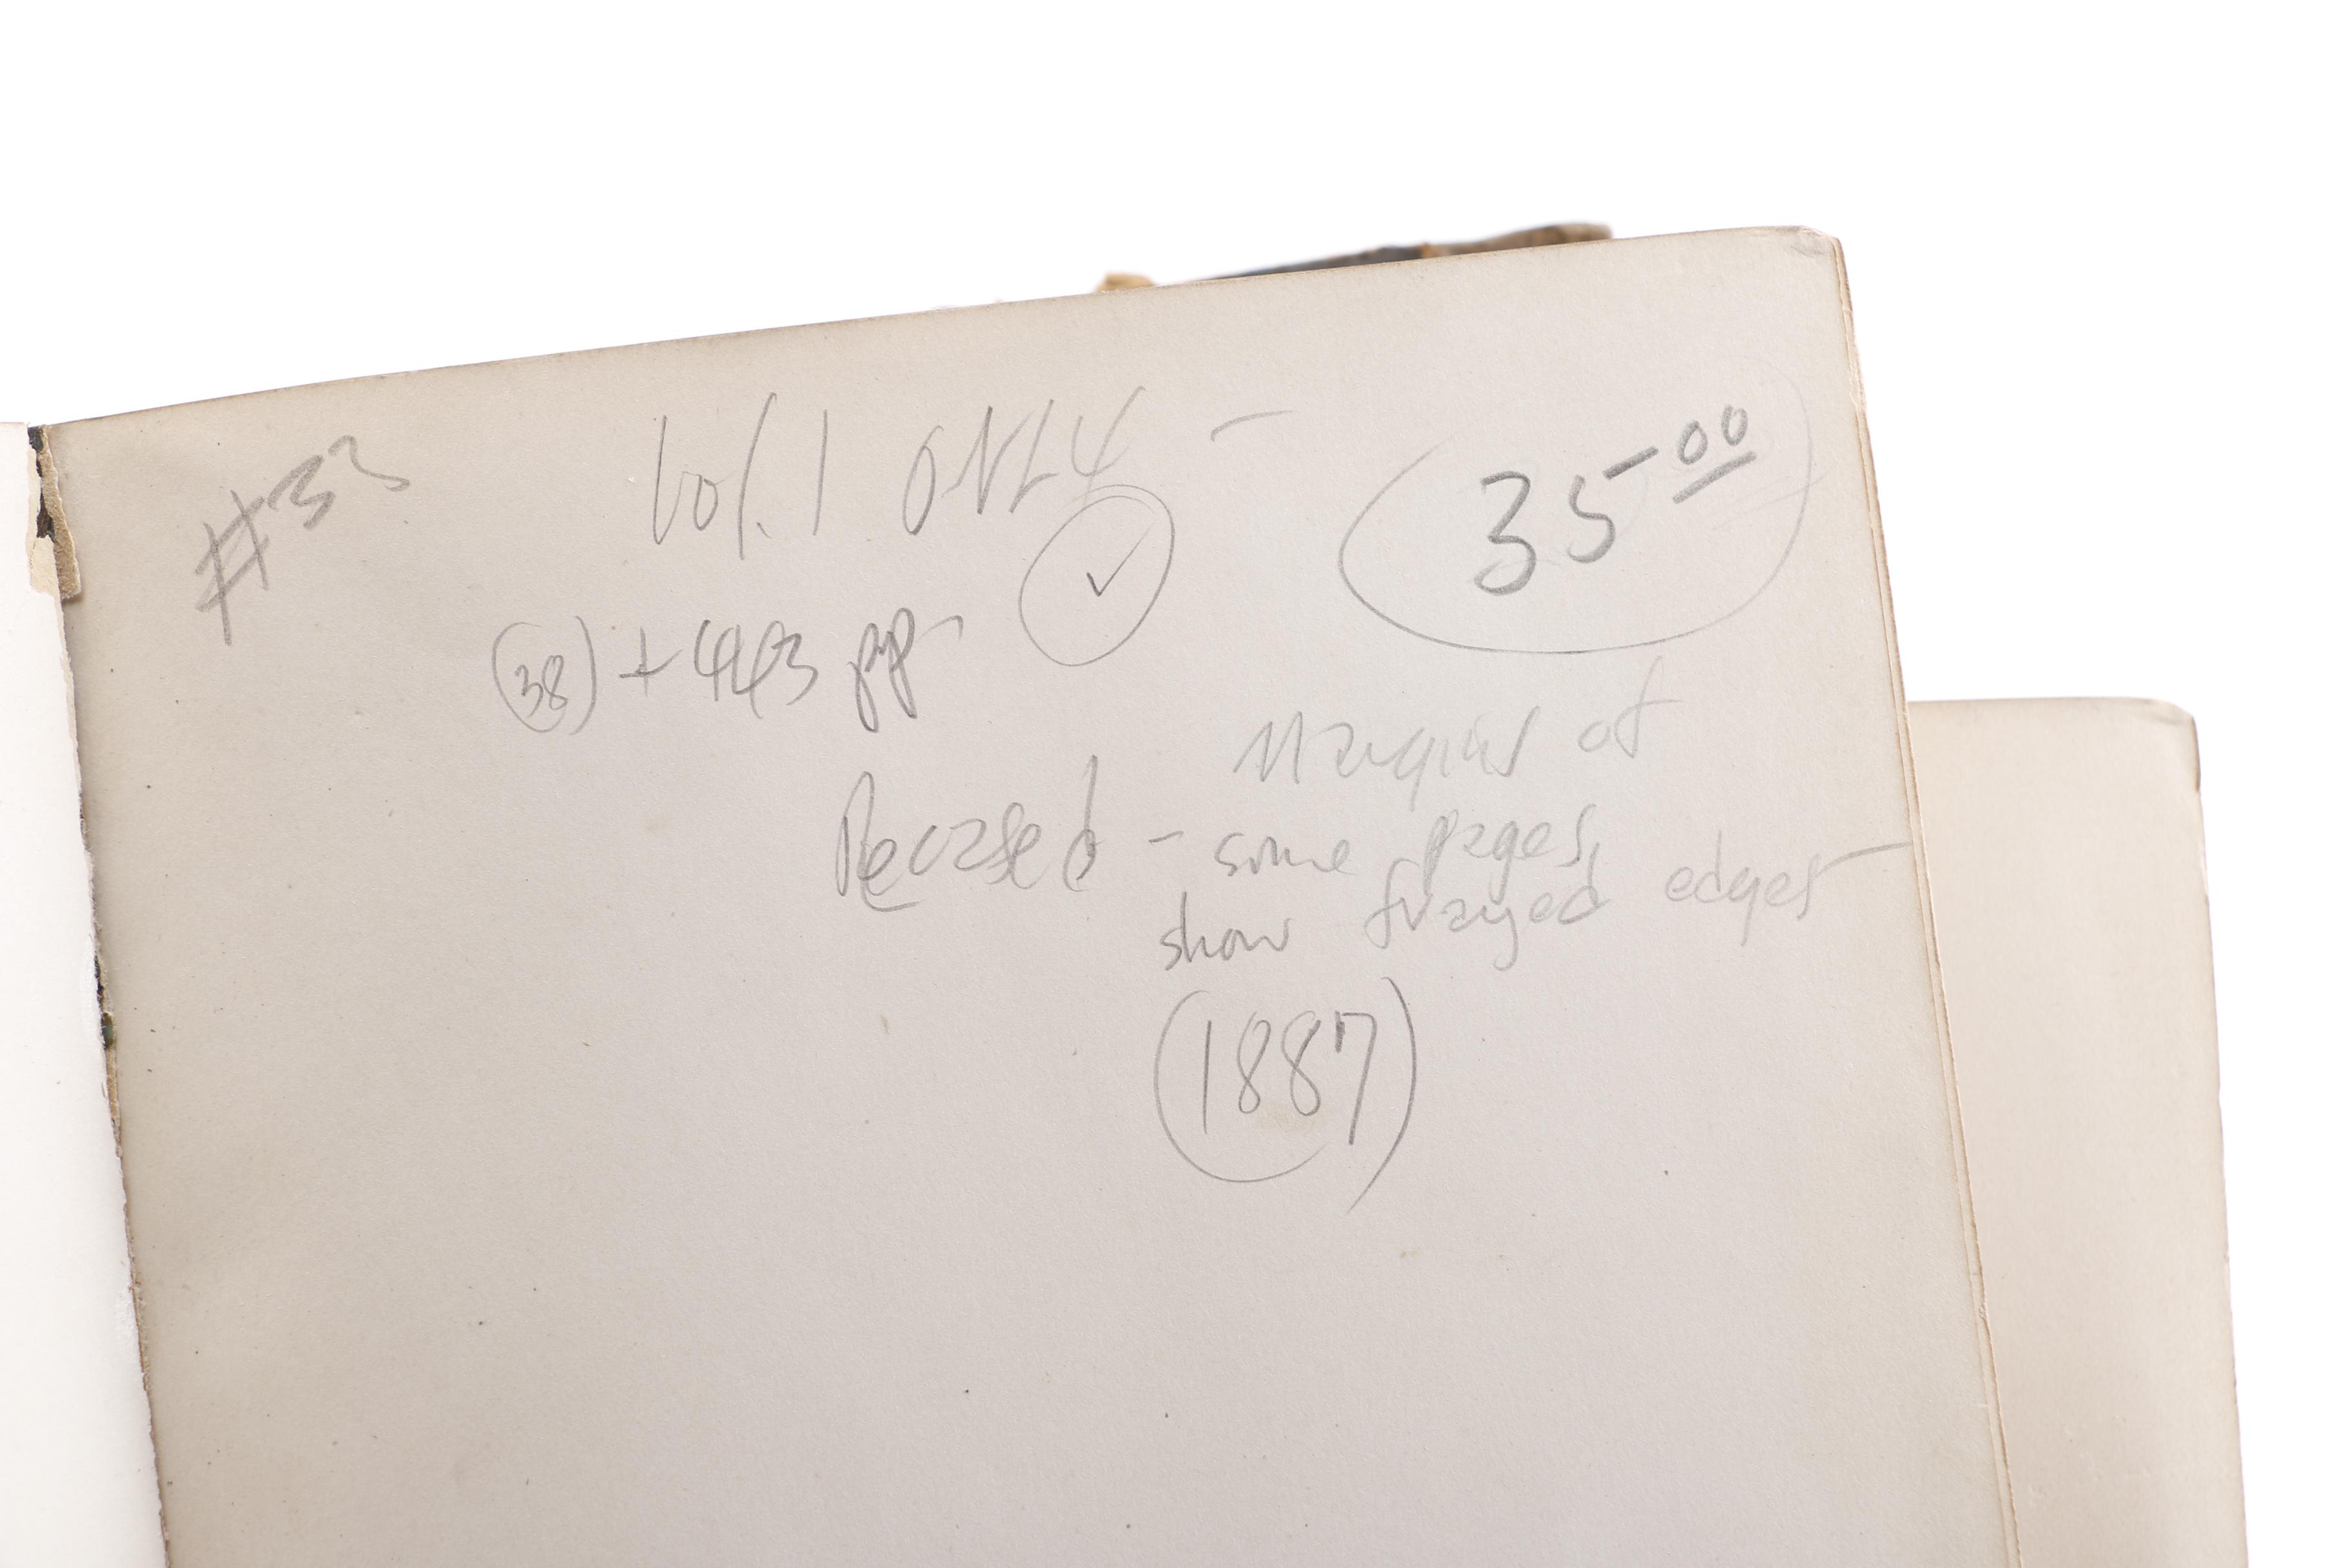 #33
Vol. 1 ONLY -
35.00
(38) + 443 pp.
Recased - Margins of
some pages
show frayed edges -
(1887)